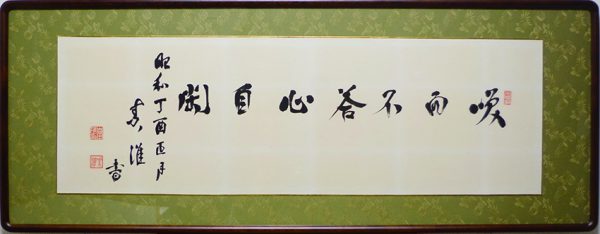 咲而不答心自閑
昭和丁酉正月
書